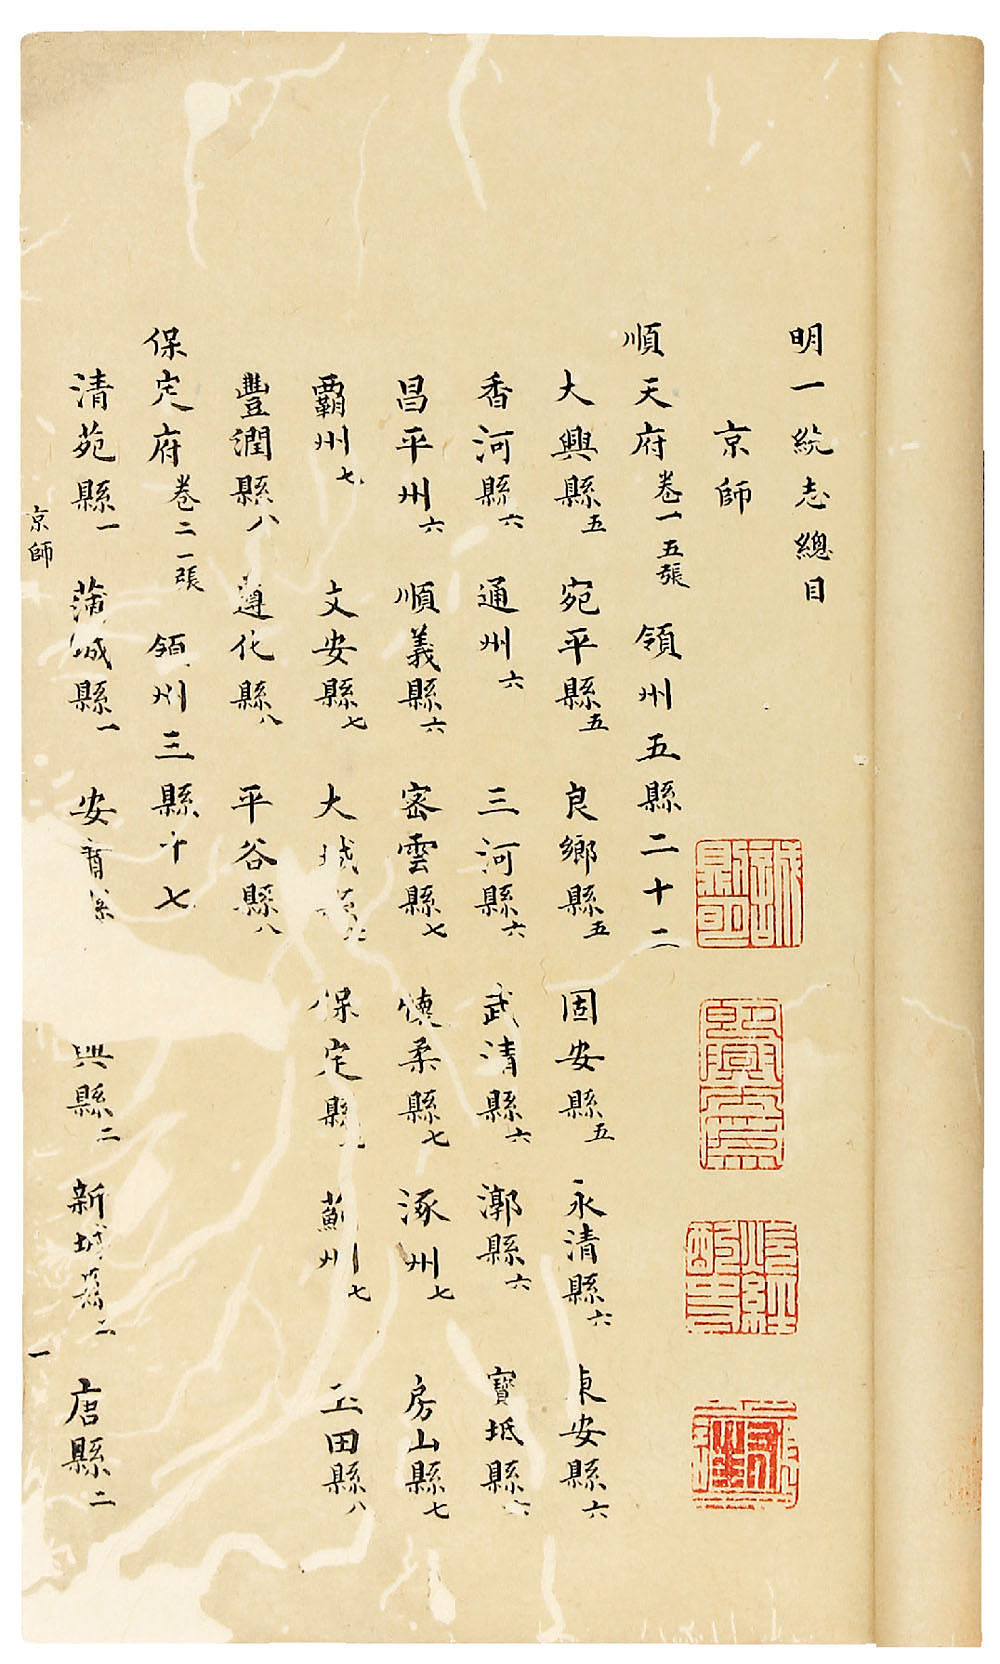 明一統志總目
京師
順天府卷一五張 領州五縣二十二
大興縣五 宛平縣五 良鄉縣五 固安縣五 永清縣六 東安縣六
香河縣六 通州六 三河縣六 武清縣六 漷縣六 寶坻縣六
昌平州六 順義縣六 密雲縣七 懷柔縣七 涿州七 房山縣七
霸州七 文安縣七 大城縣 保定縣 薊州七 玉田縣八
豐潤縣八 遵化縣八 平谷縣八
保定府卷二一張 領州三縣十七
清苑縣一 蒲城縣一 安肅縣 興縣二 新城縣二 唐縣二
京師 一